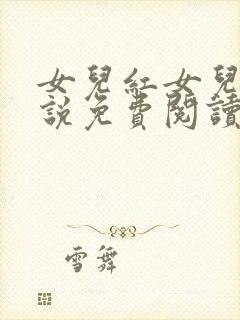 女兒紅女兒
說免費閱讀
雪舞